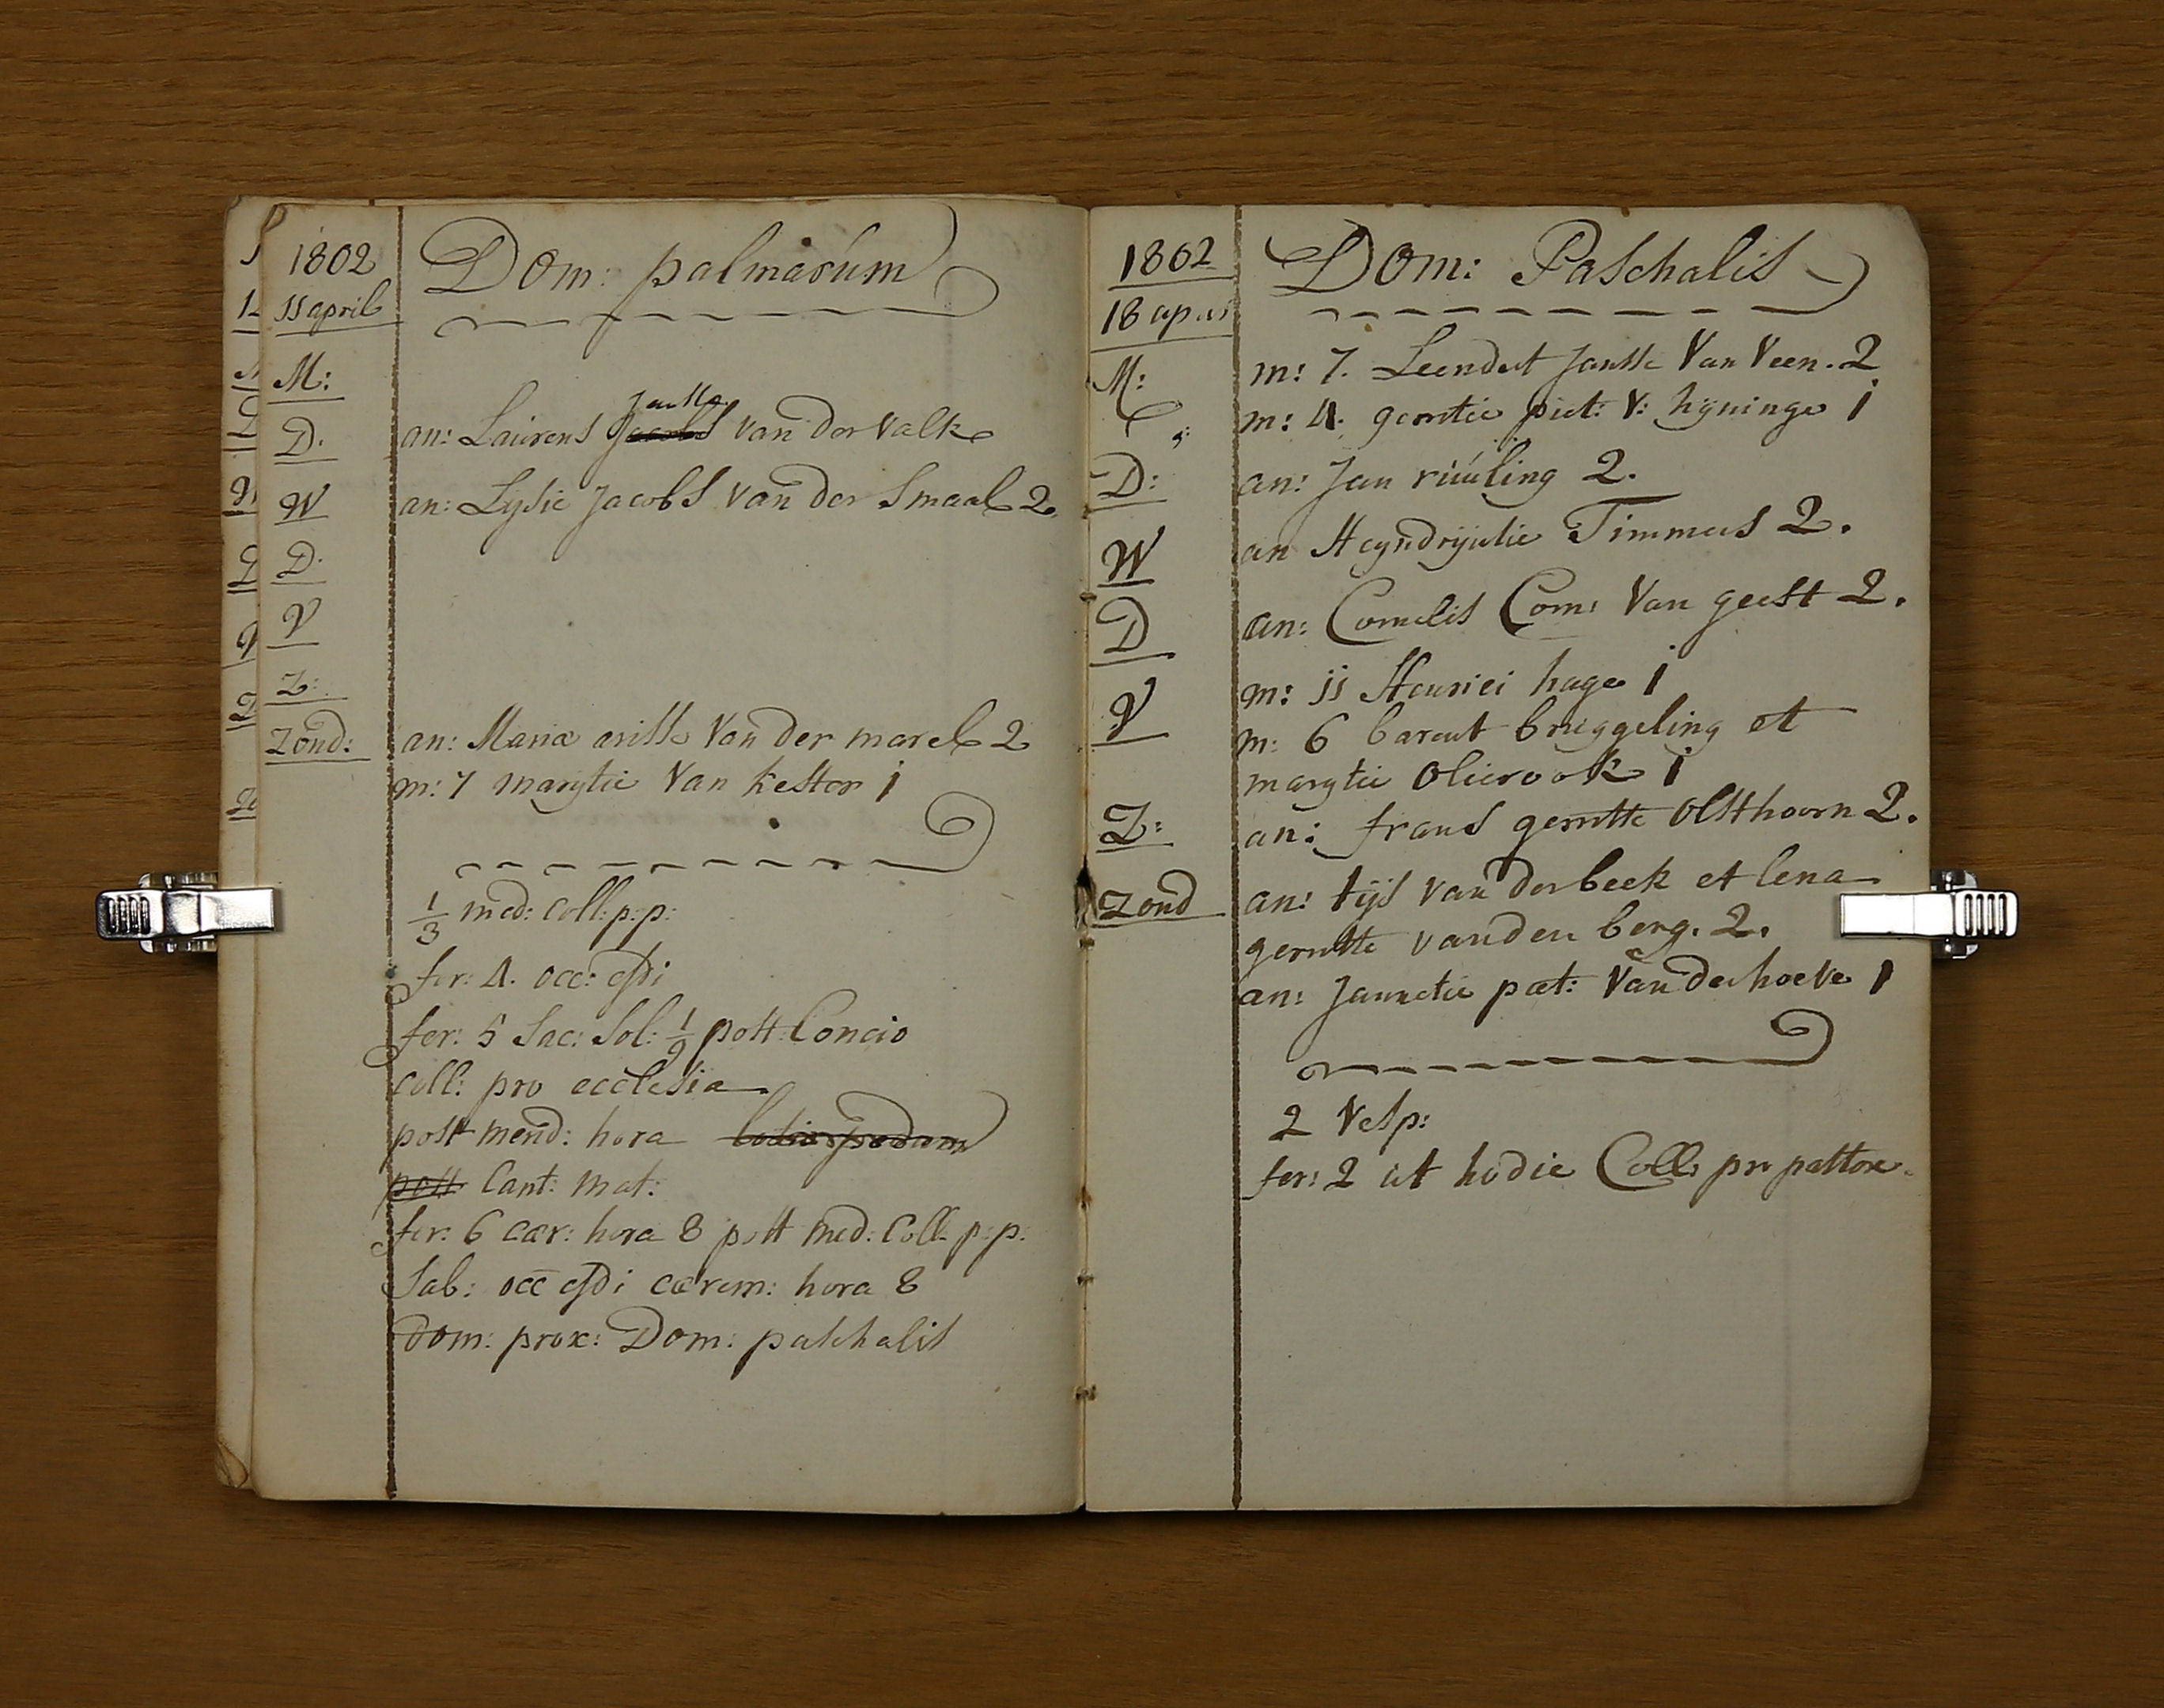 1802
Dom: palmarum
11 april
M:
D. an: Laurens Jansse Jacobs van der valk
W an: Lysie Jacobs van der Smaal 2
D.
V
Z:
Zond: an: Maria arisse Van der marel 2
m: 7 marytie Van kester i
1/3 med: Coll: p: p:
fer: 4. occ: cfdi
fer: 5 Sac: Sol: 1/9 post Concio
Coll: pro ecclesia
post mend: hora lotio pedum
post Cant: mat:
fer: 6 cær: hora 8 post med: Coll p: p:
Sab: occ cfdi cærem: hora 8
Dom: prox: Dom: paschalis
1802
Dom: Paschalis
18 april
M: m: 7. Leendert Jansse Van Veen. 2
m: 4. gerritie piet: V: hijninge i
D: an: Jan ruuling 2.
W an Heyndrijntie Timmers 2.
D an: Cornelis Corn: Van geest 2.
V m: ii Henrici hage i
m: 6 barent bruggeling et
marytie Olierook i
Z: an: frans gerritse Olsthoorn 2.
Zond an: tijs van der beek et lena
gerritse van den berg. 2.
an: Jannetie pæt: Van der hoeve i
2 Vesp:
fer: 2 ut hodie Coll: pro pastore